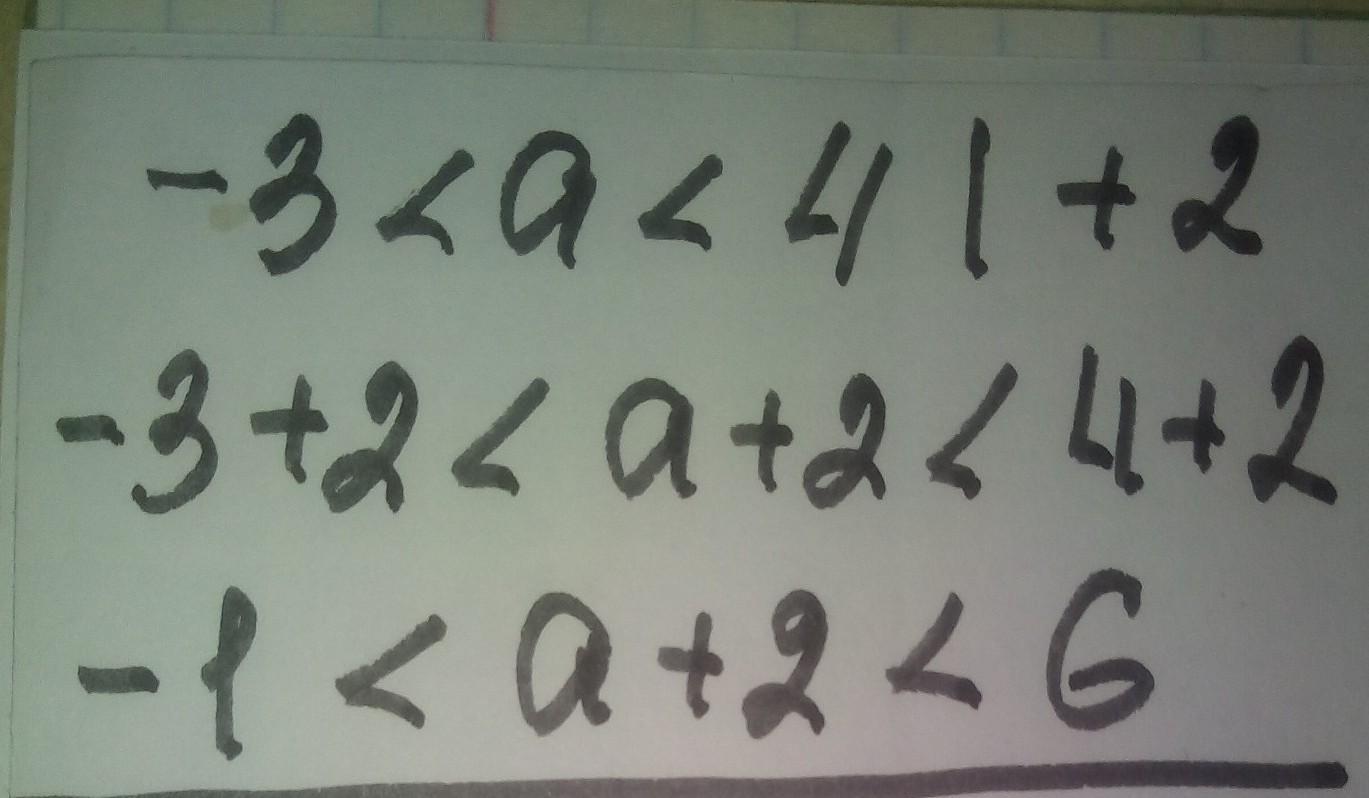 -3 < a < 4 | + 2
-3 + 2 < a + 2 < 4 + 2
-1 < a + 2 < 6